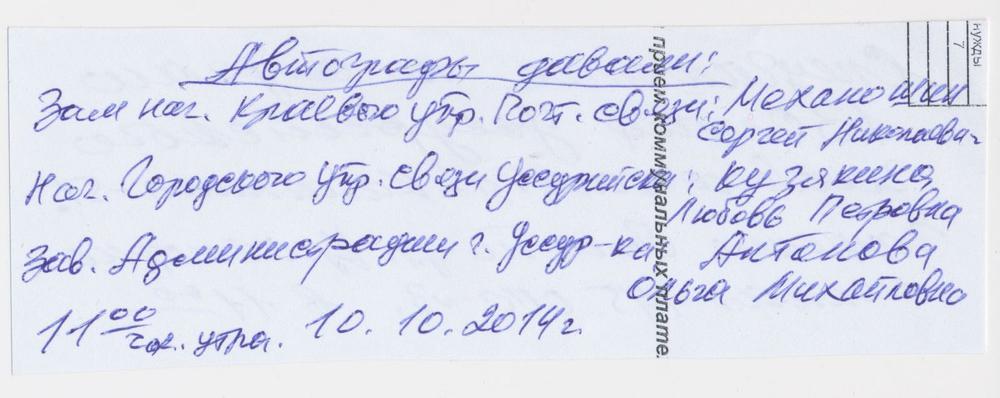 Автографы давали:
Зам нач. Краевого упр. Почт. связи: Механошин
Сергей Николаевич
Нач. Городского Упр. связи Уссурийска: Кузякина
Любовь Петровна
Зав. Администрации г. Уссур-ка Антонова
Ольга Михайловна
11 00 час. утра. 10. 10. 2014 г.
прием коммунальных плате
нужды
7